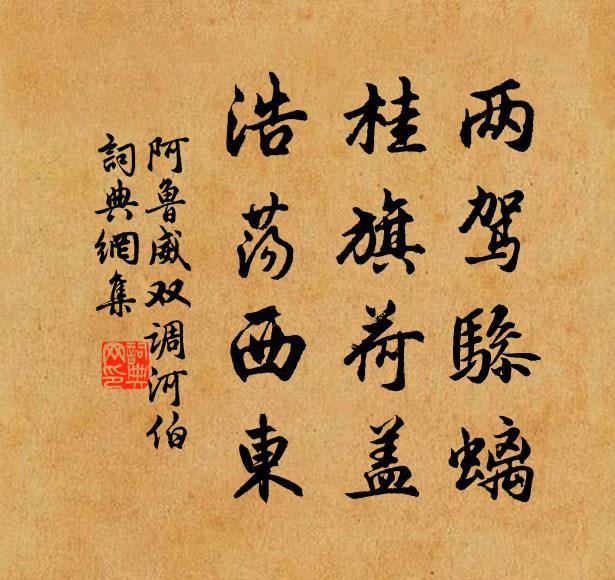 两驾驂螭
桂旗荷盖
浩荡西東
阿魯威双调河伯
詞典網集
詞典网印